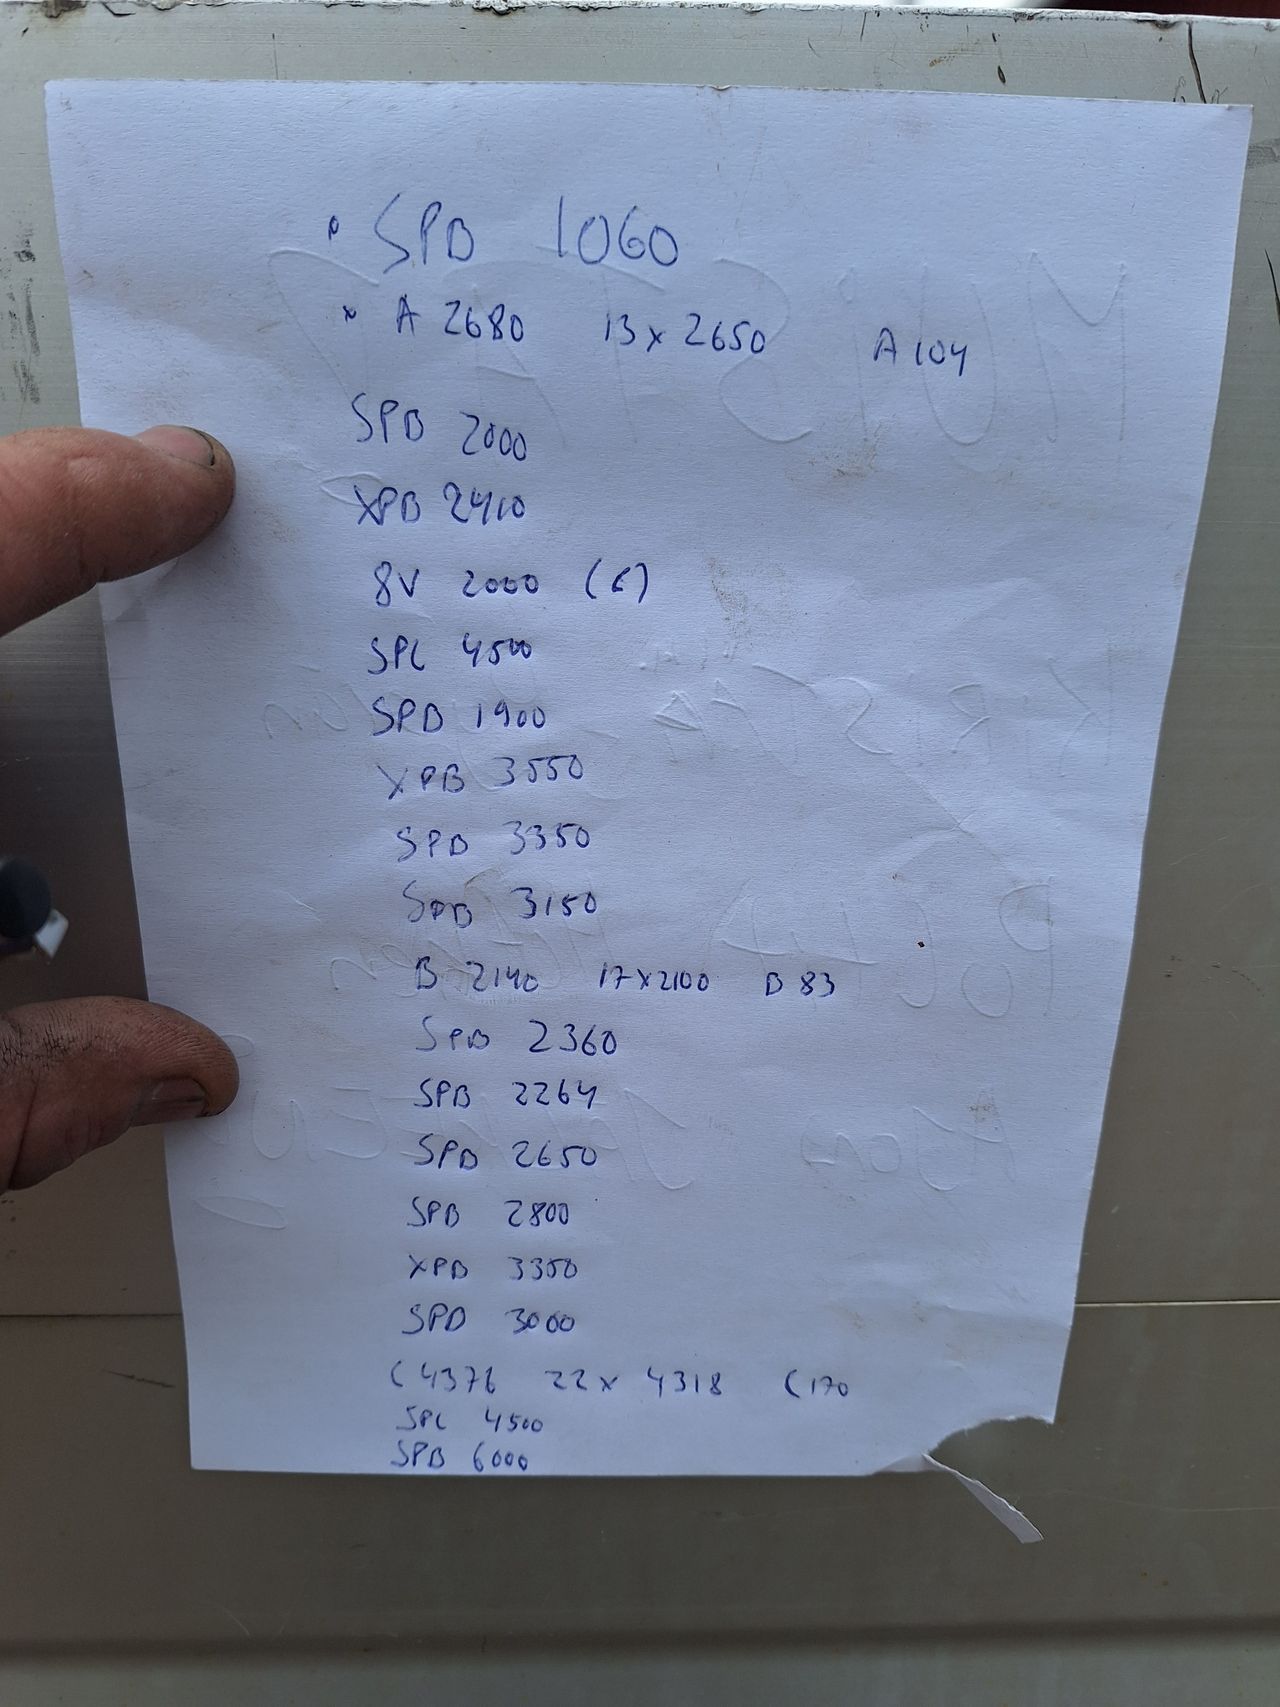 SPB 1060
A 2680 13 x 2650 A 104
SPB 2000
XPB 2410
8V 2000 (6)
SPC 4500
SPB 1900
XPB 3550
SPB 3350
SPB 3150
B 2140 17 x 2100 B 83
SPB 2360
SPB 2264
SPB 2650
SPB 2800
XPB 3350
SPB 3000
C 4376 22 x 4318 C 170
SPC 4500
SPB 6000